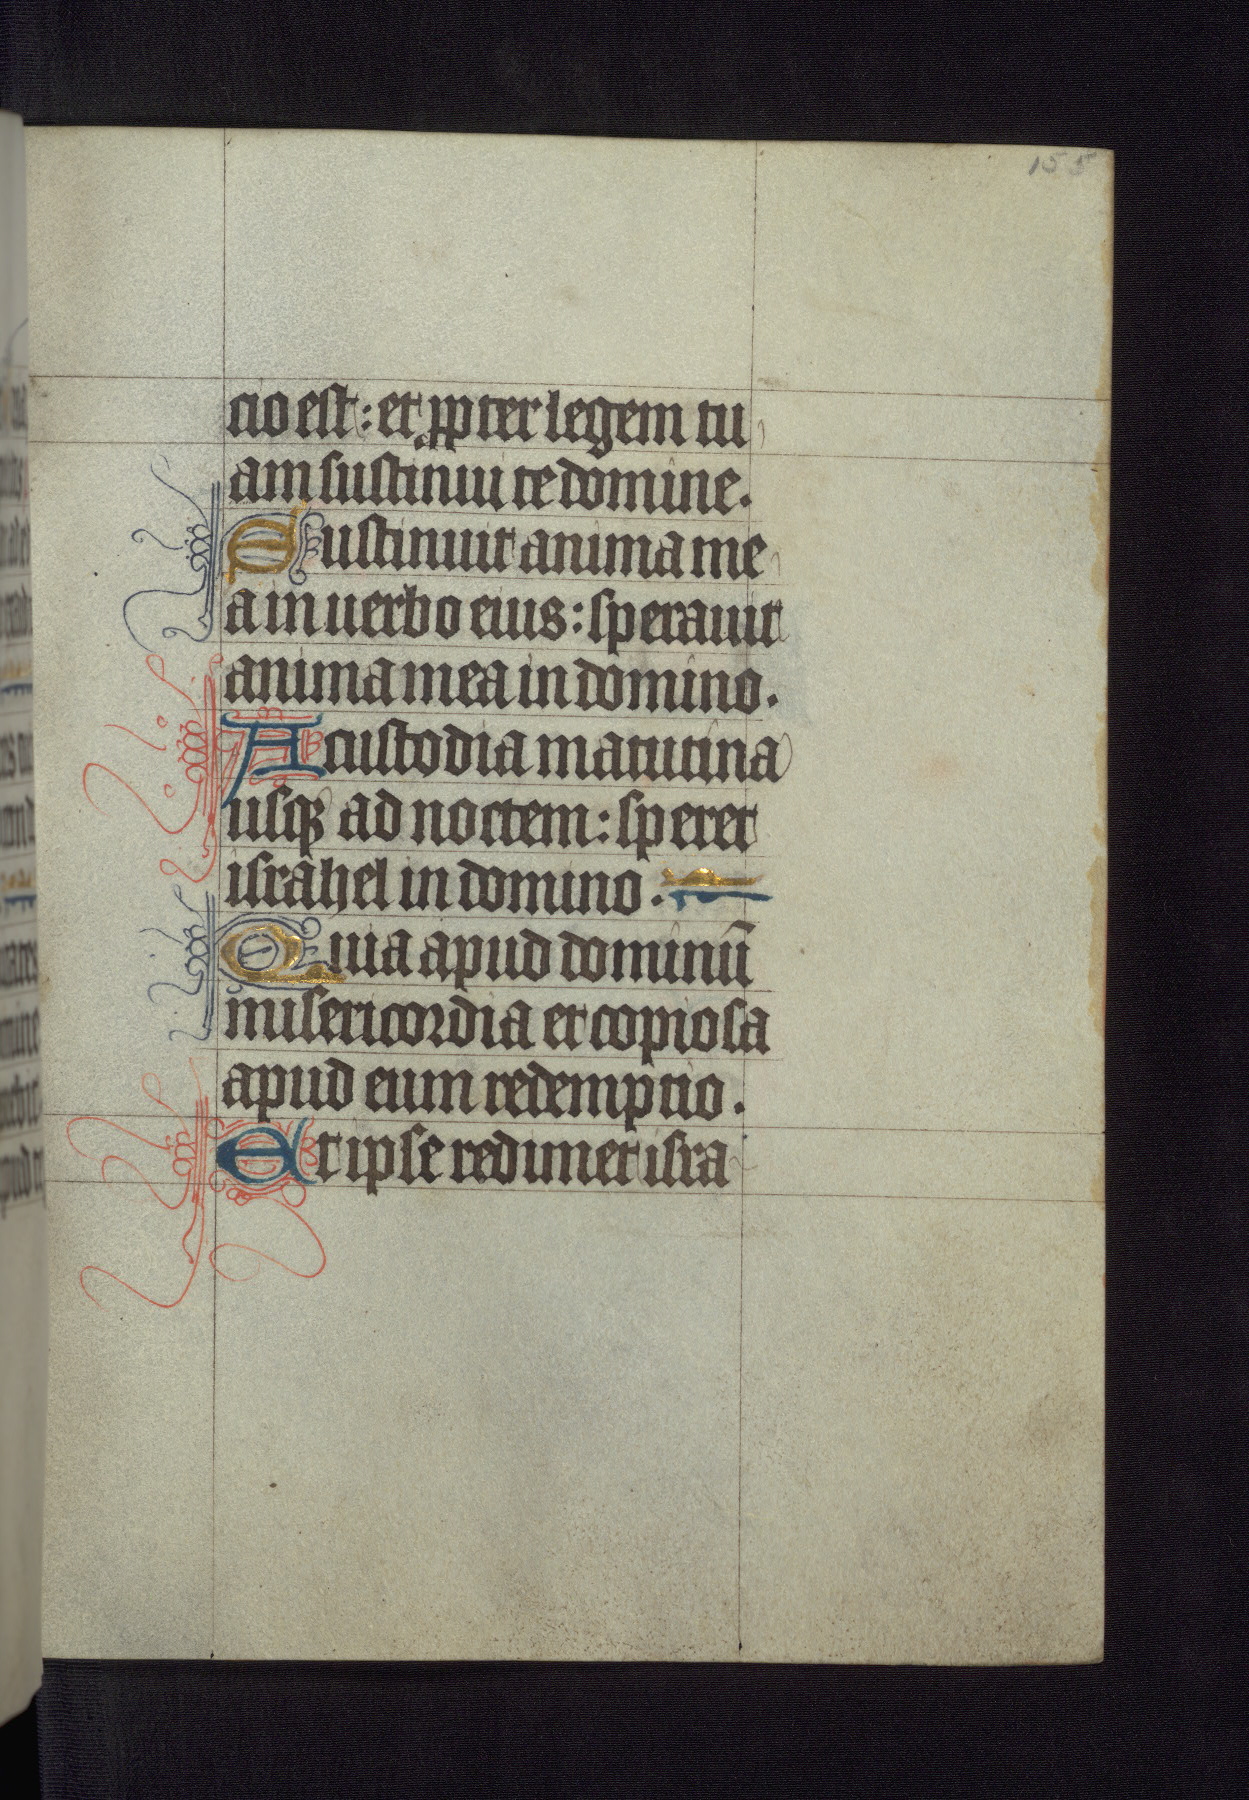 155
cio est: et ꝓpter legem tu
am sustinui te domine.
Sustinuit anima me
a in uerbo eius: sperauit
anima mea in domino.
A custodia matutina
usqꝫ ad noctem: speret
israhel in domino.
Quia apud dominū
misericordia et copiosa
apud eum redemptio.
Et ipse redimet isra